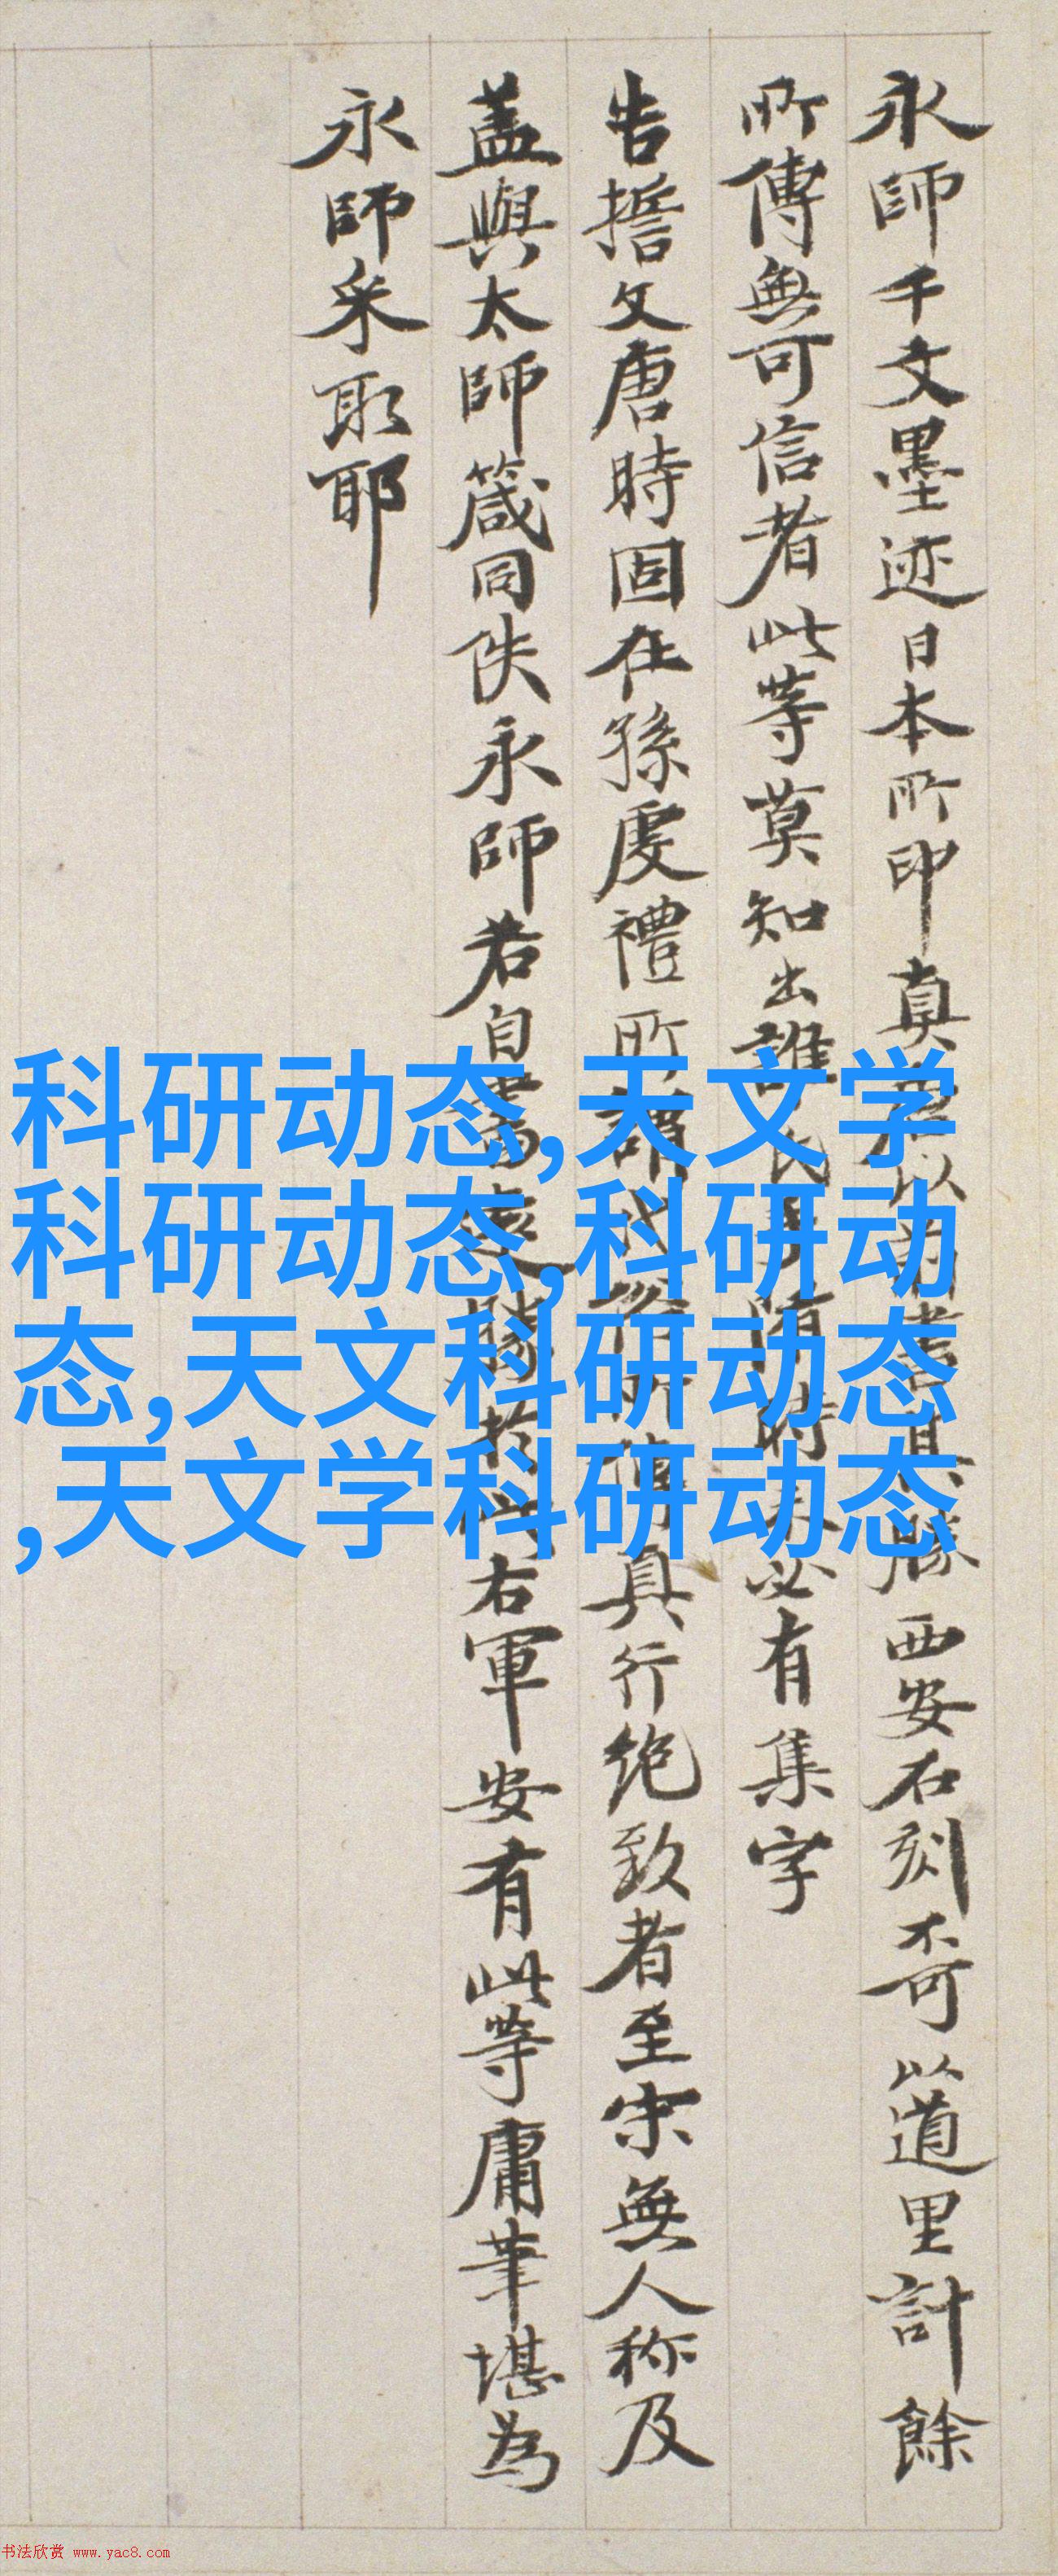 永師千文墨迹日本所印真
西安石刻奇以道里計餘
所傳無可信者此等莫知出誰
時未必有集字
告擔文唐時固在孫虔禮所謂
真行绝致者至宋無人称及
盖與太師箴同佚永師若自書
右軍安有此等庸筆堪為
永師采取耶
科研动态,天文学
科研动态,科研动
态,天文科研动态
,天文学科研动态
书法欣赏 www.yac8.com